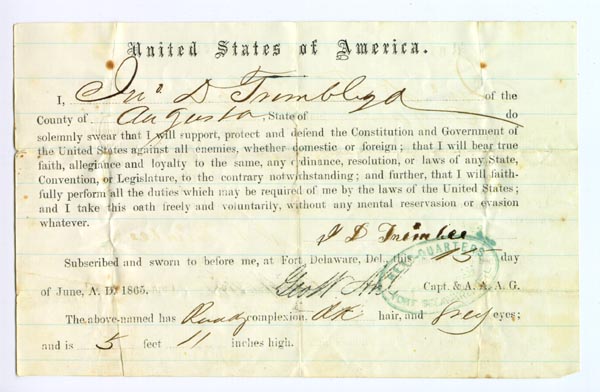 United States of America.
I, Jno D Trimble of the
County of Augusta, State of do
solemnly swear that I will support, protect and defend the Constitution and Government of
the United States against all enemies, whether domestic or foreign; that I will bear true
faith, allegiance and loyalty to the same, any ordinance, resolution, or laws of any State,
Convention, or Legislature, to the contrary notwithstanding; and further, that I will faith-
fully perform all the duties which may be required of me by the laws of the United States;
and I take this oath freely and voluntarily, without any mental reservation or evasion
whatever.
J D Trimble
HEAD-QUARTERS
Subscribed and sworn to before me, at Fort Delaware, Del., this 15 day
of June, A. D. 1865. Geo W Ahl Capt. & A. A. A. G.
FORT DELAWARE
The above-named has Ruddy complexion, Dk hair, and Grey eyes;
and is 5 feet 11 inches high.